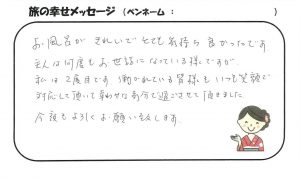 旅の幸せメッセージ (ペンネーム : )
お風呂が きれいで とても気持ち 良かったです
主人は何度も お世話になっている様ですが
私は 2度目です 働かれている 皆様も いつも笑顔で
対応して頂いて 幸わせな気分で過ごさせて 頂きました
今後もよろしくお願い致します。